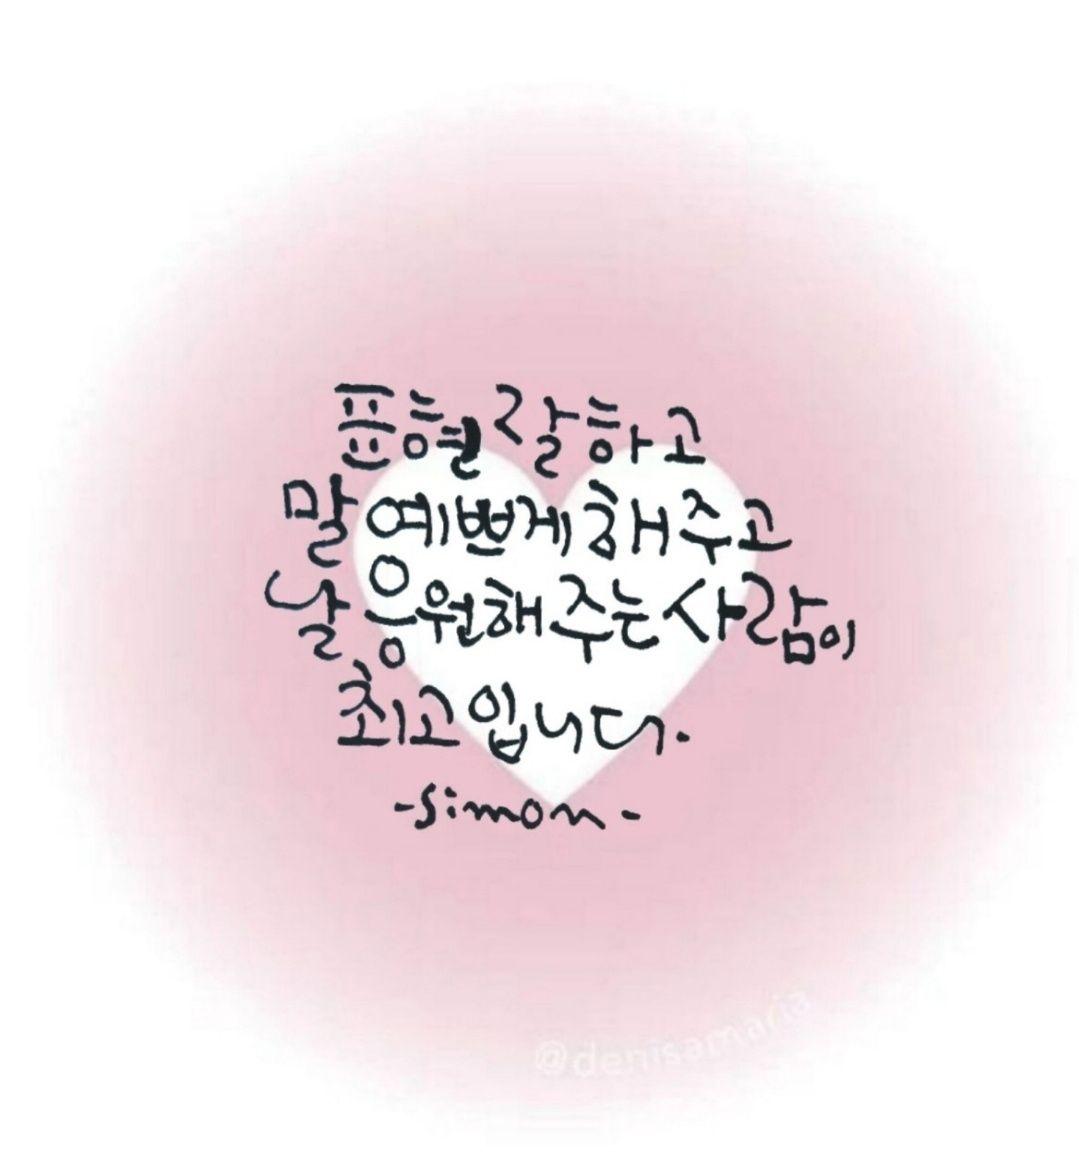 표현 잘하고
말 예쁘게 해주고
날 응원해주는 사람이
최고입니다.
-simon-
@denisamaria